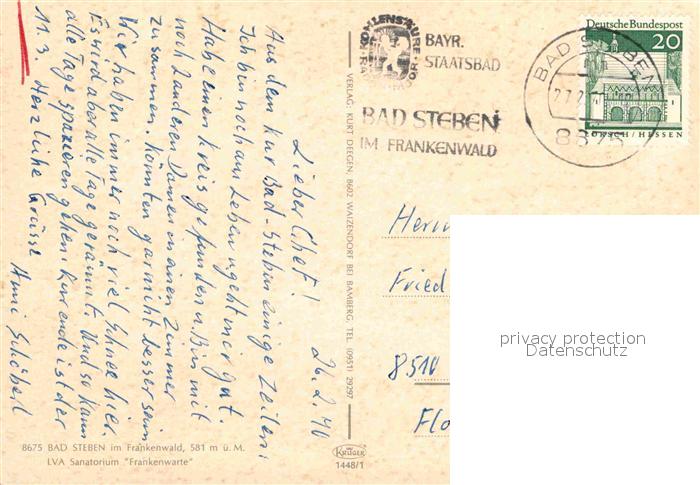 Lieber Chef! 26.2.70
Aus dem Kur Bad-Steben einige Zeilen.
Ich bin noch am Leben u. geht mir gut.
Habe einen Kreis gefunden u. Bin mit
noch 2 anderen Damen in einen Zimmer
zusammen. Könnten garnicht besser sein
Wir haben immer noch viel Schnee hier.
Es wird aber alle Tage geräumt. Und so kann
alle Tage spazieren gehen. Kurende ist der
11.3. Herzliche Grüsse Anni
8675 BAD STEBEN im Frankenwald, 581 m ü. M.
LVA Sanatorium "Frankenwarte"
VERLAG: KURT DEEGEN, 8602 WAIZENDORF BEI BAMBERG, TEL. (0951) 29297
KRÜGER
1448/1
BAYR.
STAATSBAD
BAD STEBEN
IM FRANKENWALD
BAD STEBEN
8675
Deutsche Bundespost
20
LORSCH/HESSEN
Herrn
Fried
8510
privacy protection
Datenschutz